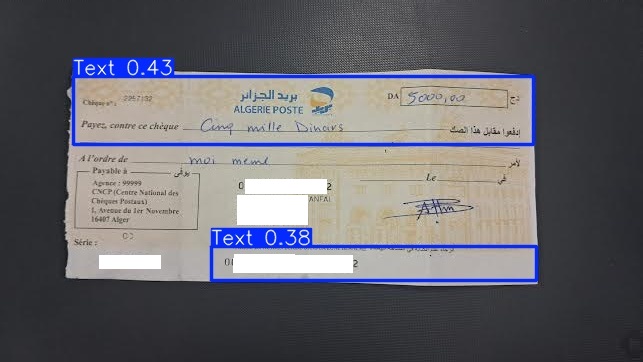 Text 0.43
بريد الجزائر
ALGERIE POSTE
Chèque n° :
DA 5000,00 دج
Payez, contre ce chèque Cinq mille Dinars إدفعوا مقابل هذا الصك
A l'ordre de moi meme لأمر
Payable à يوفى
Agence : 99999
CNCP (Centre National des
Chèques Postaux)
1, Avenue du 1er Novembre
16407 Alger
Le في
0 2
ANFAI
Série :
Text 0.38
0 2